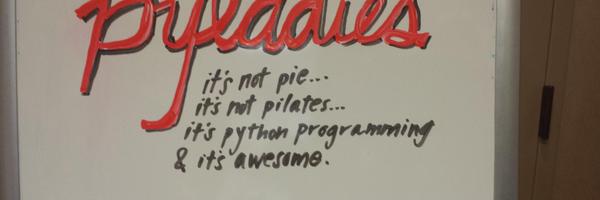 pyladies
it's not pie...
it's not pilates...
it's python programming
& it's awesome.